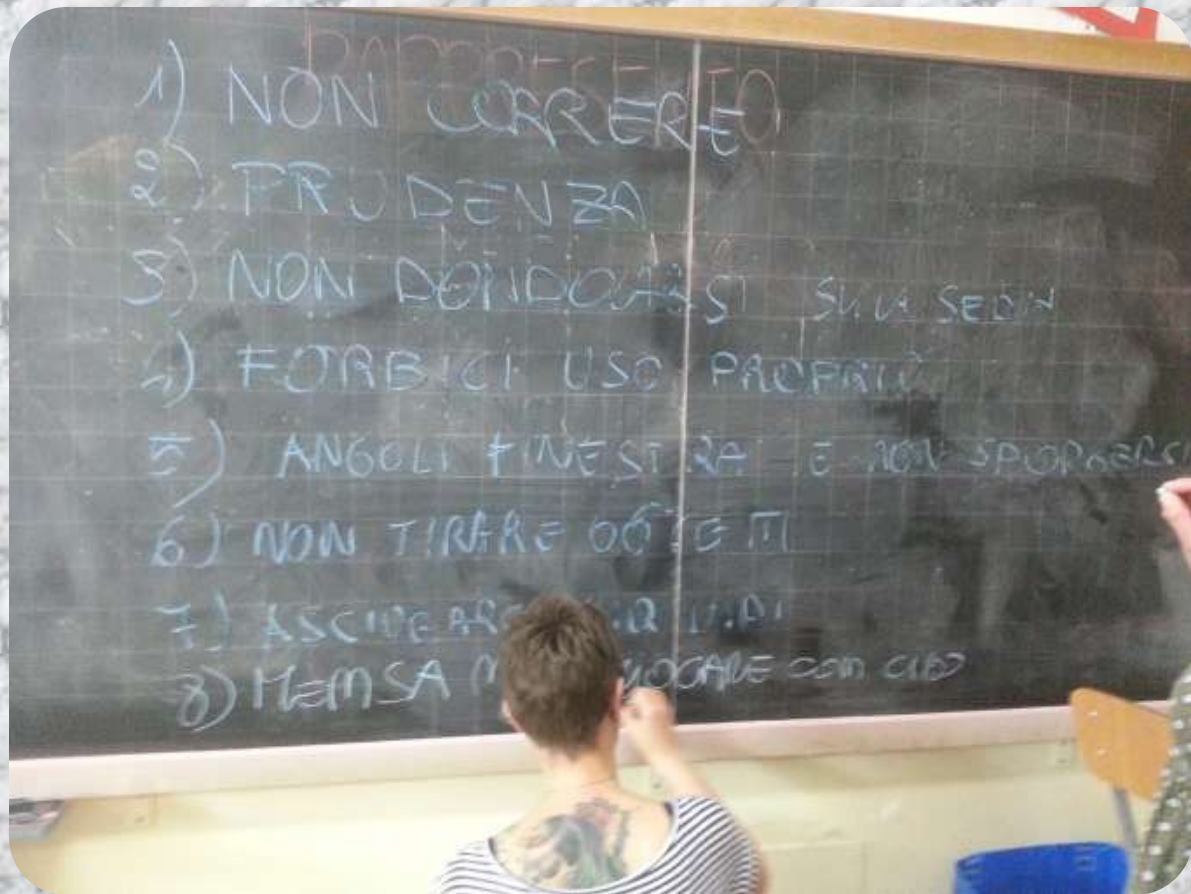 1) NON CORRERE
2) PRUDENZA
3) NON DONDOLARSI SULLA SEDIA
4) FORBICI USO PROPRIO
5) ANGOLI FINESTRA E NON SPORGERSI
6) NON TIRARE OGGETTI
7) ASCIUGARE LIQUIDI
8) MEMSA GIOCARE CON CIBO